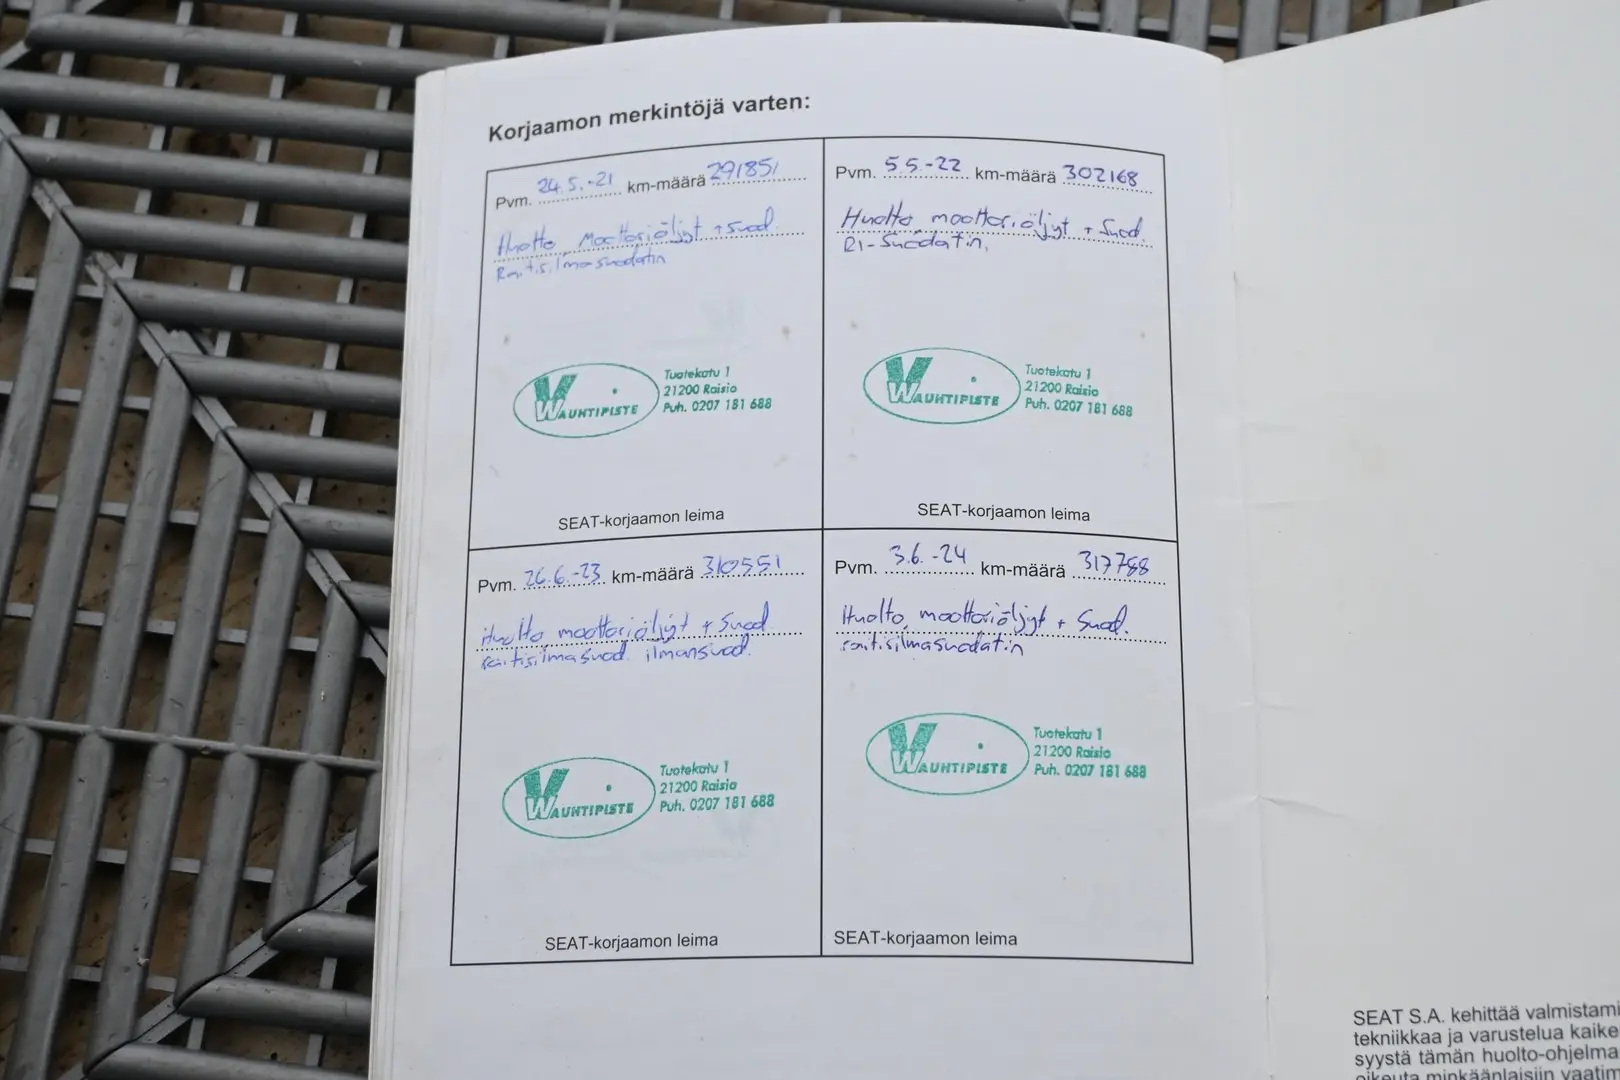 Korjaamon merkintöjä varten:
Pvm. 24.5.-21 km-määrä 291851
Huolto, Moottoriöljyt + suod.
Raitisilmasuodatin
VV WAUHTIPISTE
Tuotekatu 1
21200 Raisio
Puh. 0207 181 688
SEAT-korjaamon leima
Pvm. 5.5.-22 km-määrä 302168
Huolto, moottoriöljyt + Suod.
RI-Suodatin,
VV WAUHTIPISTE
Tuotekatu 1
21200 Raisio
Puh. 0207 181 688
SEAT-korjaamon leima
Pvm. 26.6.-23 km-määrä 310551
Huolto moottoriöljyt + Suod.
raitisilmasuod. ilmansuod.
VV WAUHTIPISTE
Tuotekatu 1
21200 Raisio
Puh. 0207 181 688
SEAT-korjaamon leima
Pvm. 3.6.-24 km-määrä 317788
Huolto, moottoriöljyt + Suod.
raitisilmasuodatin
VV WAUHTIPISTE
Tuotekatu 1
21200 Raisio
Puh. 0207 181 688
SEAT-korjaamon leima
SEAT S.A. kehittää valmistami
tekniikkaa ja varustelua kaike
syystä tämän huolto-ohjelma
oikeuta minkäänlaisiin vaatim